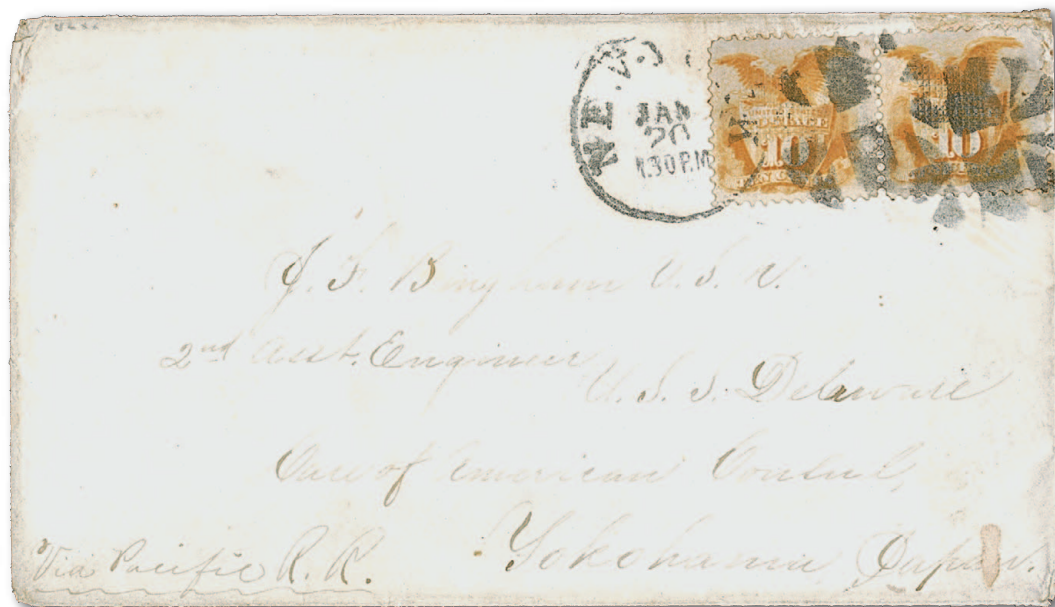 NEW YO
JAN
20
1.30 P.M
10
10
J. F. Bingham U.S.N.
2nd Asst. Engineer
U.S.S. Delaware
Care of American Consul,
Yokohama Japan.
Via Pacific R.R.